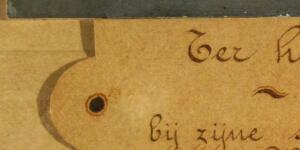 Ter h
bij zijne